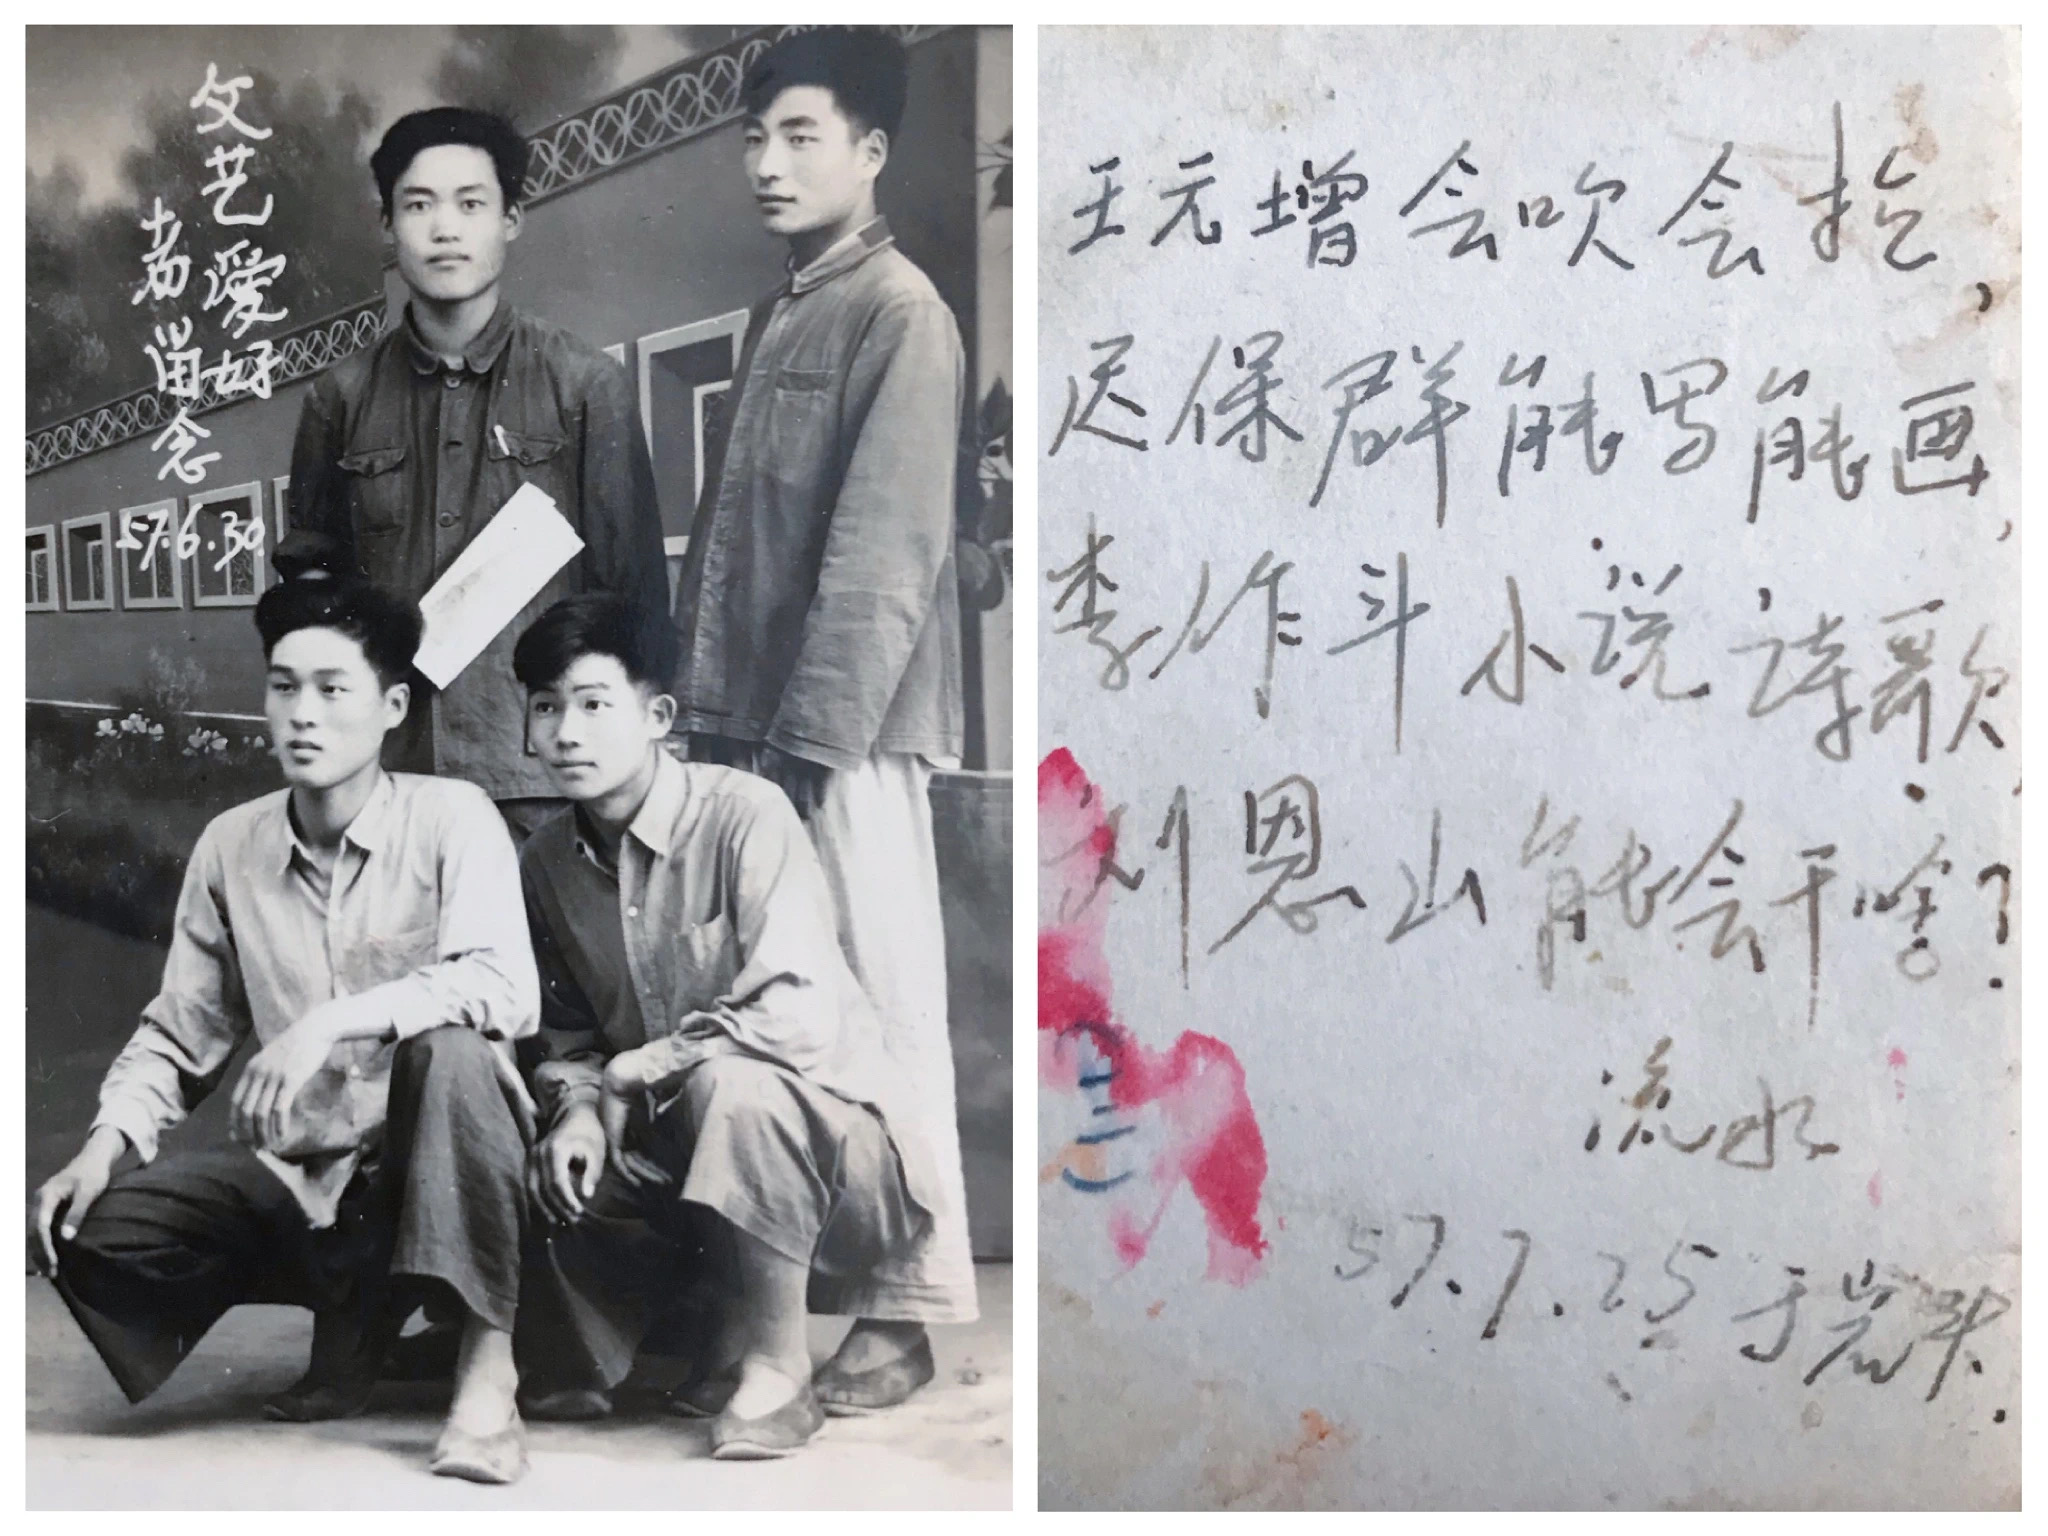 文艺愛好
者留念
57.6.30.
王元增会吹会拉,
迟保群能写能画,
李作斗小说诗歌,
刘恩山能会干啥?
流水
57.7.25于岩